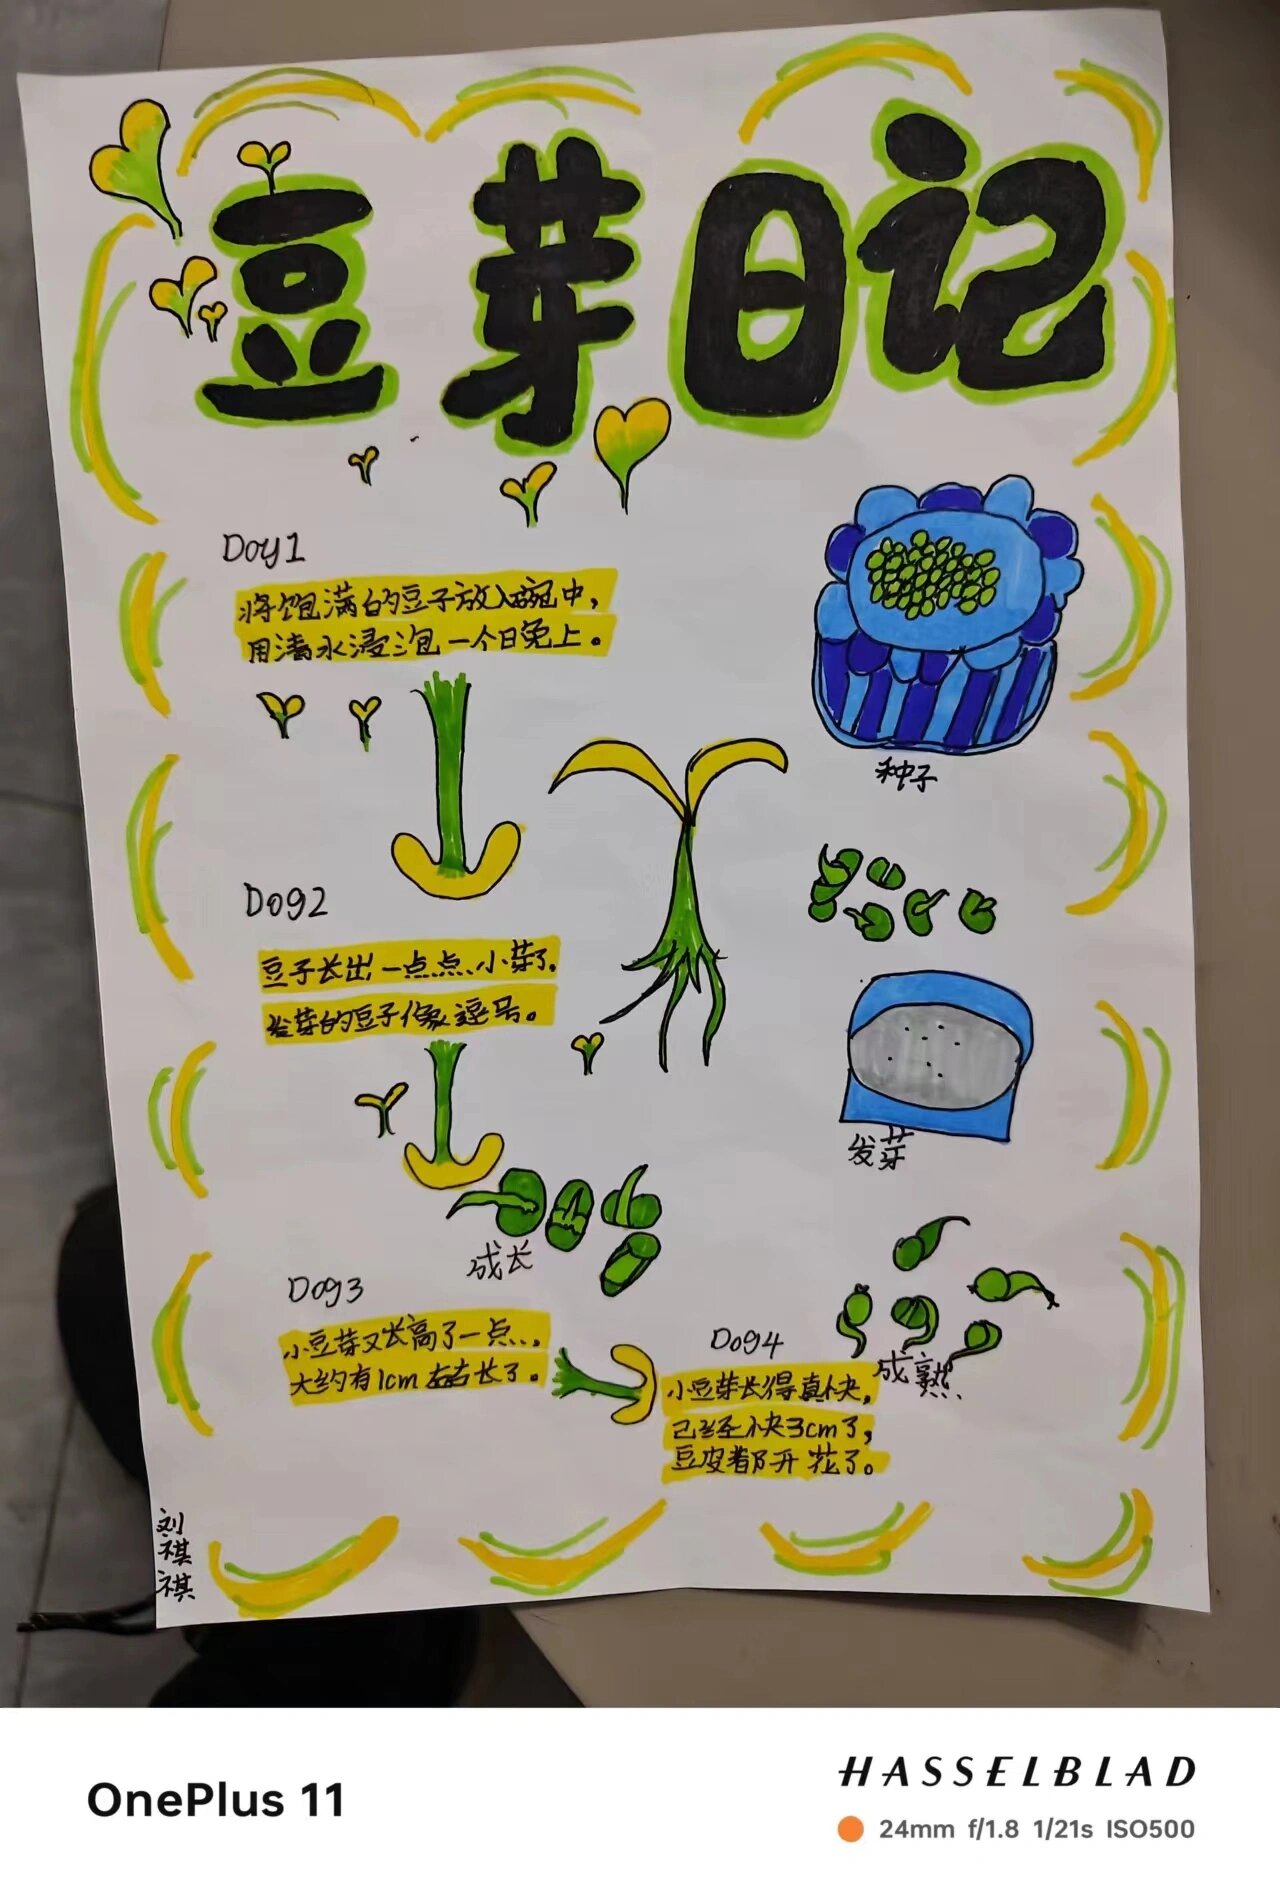 豆芽日记
Doy1
将饱满的豆子放入碗中，
用清水浸泡一个日免上。
种子
Dog2
豆子长出一点点小芽了，
发芽的豆子像逗号。
发芽
成长
Dog3
小豆芽又长高了一点，
大约有1cm左右长了。
Dog4
小豆芽长得真快，
已经快3cm了，
豆皮都开花了。
成熟
刘
祺
祺
OnePlus 11
HASSELBLAD
24mm f/1.8 1/21s ISO500